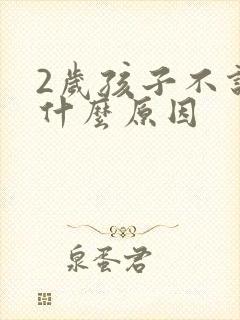 2歲孩子不
什麼原因
泉蛋君